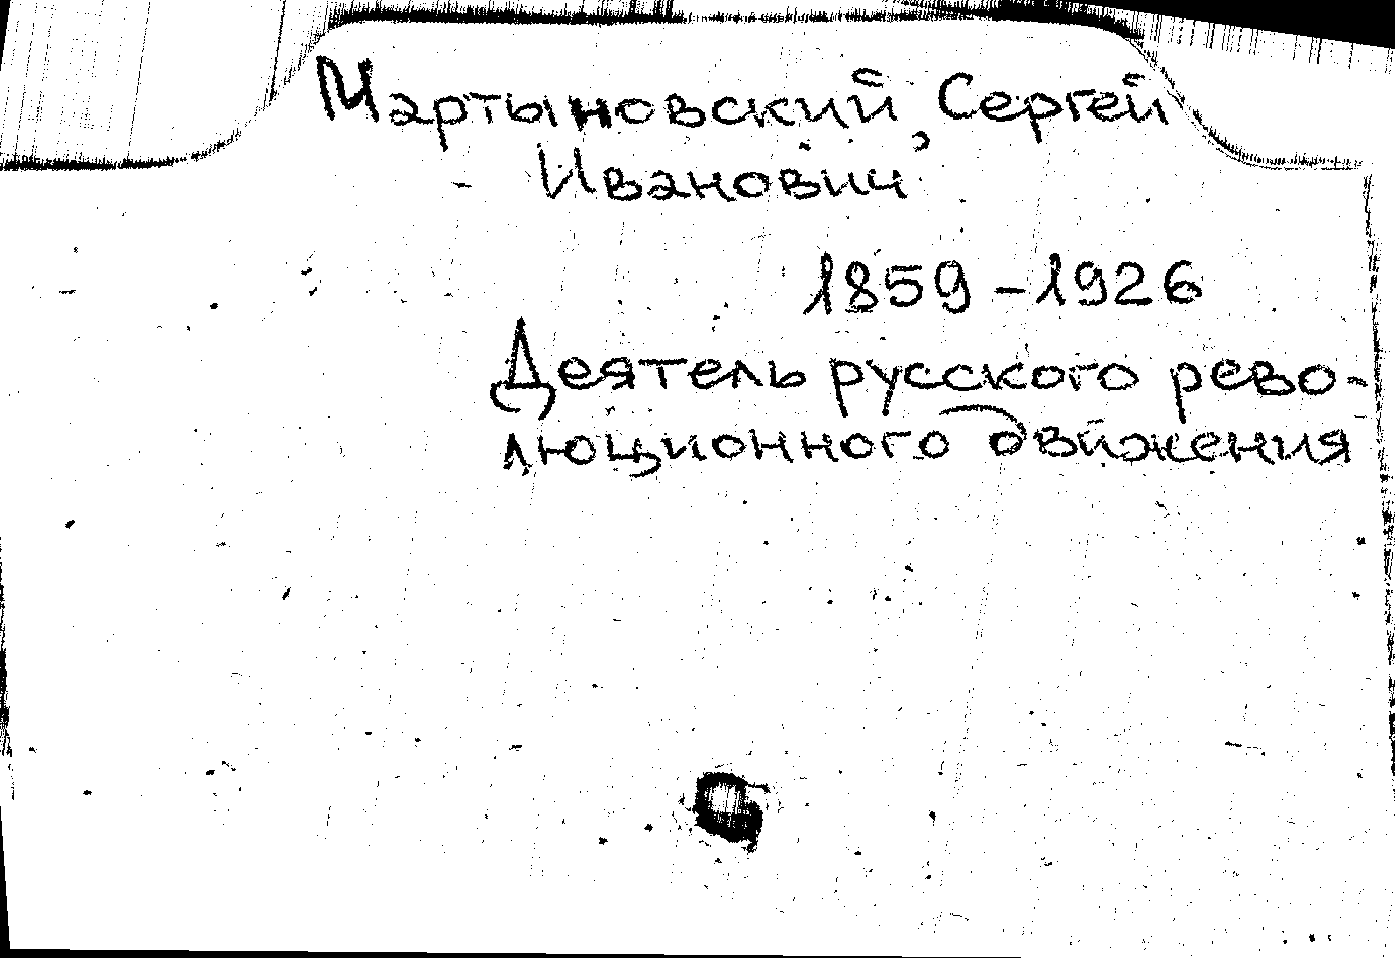 Мартыновский, Сергей
Иванович
1859 - 1926
Деятель русского рево-
люционного движения